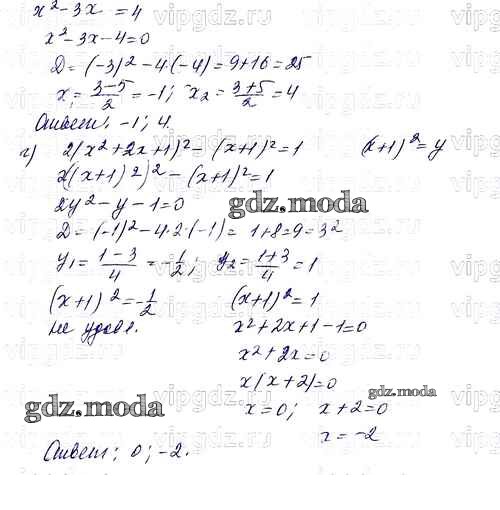 x² - 3x = 4
x² - 3x - 4 = 0
D = (-3)² - 4·(-4) = 9 + 16 = 25
x₁ = (3-5)/2 = -1; x₂ = (3+5)/2 = 4
Ответ: -1; 4.
г) 2(x² + 2x + 1)² - (x+1)² = 1 (x+1)² = y
2((x+1)²)² - (x+1)² = 1
2y² - y - 1 = 0
gdz.moda
D = (-1)² - 4·2·(-1) = 1 + 8 = 9 = 3²
y₁ = (1-3)/4 = -1/2; y₂ = (1+3)/4 = 1
(x+1)² = -1/2 (x+1)² = 1
не удовл. x² + 2x + 1 - 1 = 0
x² + 2x = 0
x(x+2) = 0
gdz.moda
gdz.moda
x = 0; x + 2 = 0
x = -2
Ответ: 0; -2.
vipgdz.com